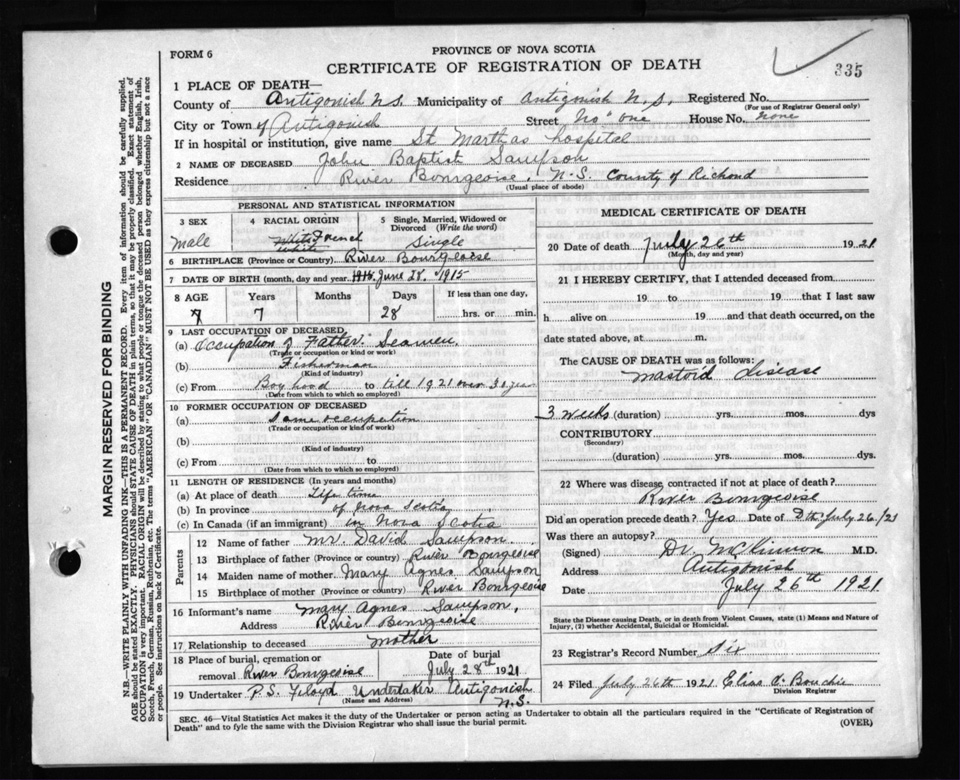 FORM 6
PROVINCE OF NOVA SCOTIA
CERTIFICATE OF REGISTRATION OF DEATH
335
1 PLACE OF DEATH—
County of Antigonish N.S. Municipality of Antigonish N.S. Registered No.
(For use of Registrar General only)
City or Town of Antigonish Street No one House No. none
If in hospital or institution, give name St Marthas hospital
2 NAME OF DECEASED John Baptist Sampson
Residence River Bourgeoise. N.S. County of Richond
(Usual place of abode)
PERSONAL AND STATISTICAL INFORMATION
3 SEX
male
4 RACIAL ORIGIN
French
5 Single, Married, Widowed or Divorced (Write the word)
Single
6 BIRTHPLACE (Province or Country) River Bourgeoise
7 DATE OF BIRTH (month, day and year) 1915 June 28, 1915
8 AGE Years Months Days If less than one day,
7 7 28 hrs. or min.
9 LAST OCCUPATION OF DECEASED
(a) Occupation of Father. Seamen
(Trade or occupation or kind or work)
(b) Fisherman
(Kind of industry)
(c) From Boy hood to till 1921 over 30 year
(Date from which to which so employed)
10 FORMER OCCUPATION OF DECEASED
(a) Same occupation
(Trade or occupation or kind of work)
(b)
(Kind of industry)
(c) From to
(Date from which to which so employed)
11 LENGTH OF RESIDENCE (In years and months)
(a) At place of death Life time
(b) In province of Nova Scotia
(c) In Canada (if an immigrant) in Nova Scotia
Parents
12 Name of father Mr. David Sampson
13 Birthplace of father (Province or country) River Bourgeoise
14 Maiden name of mother Mary Agnes Sampson
15 Birthplace of mother (Province or country) River Bourgeoise
16 Informant's name Mary Agnes Sampson,
Address River Bourgeoise
17 Relationship to deceased mother
18 Place of burial, cremation or removal River Bourgeoise
Date of burial
July 28th 1921
19 Undertaker P.S. Floyd Undertaker Antigonish N.S.
(Name and Address)
MEDICAL CERTIFICATE OF DEATH
20 Date of death July 26th 1921
(Month, day and year)
21 I HEREBY CERTIFY, that I attended deceased from
19 to 19 that I last saw
h alive on 19 and that death occurred, on
date stated above, at m.
The CAUSE OF DEATH was as follows:
mastoid disease
3 weeks (duration) yrs. mos. dys
CONTRIBUTORY
(Secondary)
(duration) yrs. mos. dys.
22 Where was disease contracted if not at place of death?
River Bourgeoise
Did an operation precede death? Yes Date of July 26/21
Was there an autopsy?
(Signed) Dr. McKinnon M.D.
Address Antigonish
Date July 26th 1921
State the Disease causing Death, or in death from Violent Causes, state (1) Means and Nature of Injury, (2) whether Accidental, Suicidal or Homicidal.
23 Registrar's Record Number six
24 Filed July 26th 1921 Elias Bouchie
Division Registrar
SEC. 46—Vital Statistics Act makes it the duty of the Undertaker or person acting as Undertaker to obtain all the particulars required in the "Certificate of Registration of
Death" and to fyle the same with the Division Registrar who shall issue the burial permit.
(OVER)
MARGIN RESERVED FOR BINDING
N.B.—WRITE PLAINLY WITH UNFADING INK—THIS IS A PERMANENT RECORD. Every item of information should be carefully supplied.
AGE should be stated EXACTLY. PHYSICIANS should STATE CAUSE OF DEATH in plain terms, so that it may be properly classified. Exact statement of
OCCUPATION is very important. RACIAL ORIGIN will be described by stating to what people or tongue the deceased person belonged whether English, Irish,
Scotch, French, German, Russian, Ruthenian, etc. The terms "AMERICAN" OR "CANADIAN" MUST NOT BE USED as they express citizenship but not a race
or people. See instructions on back of Certificate.